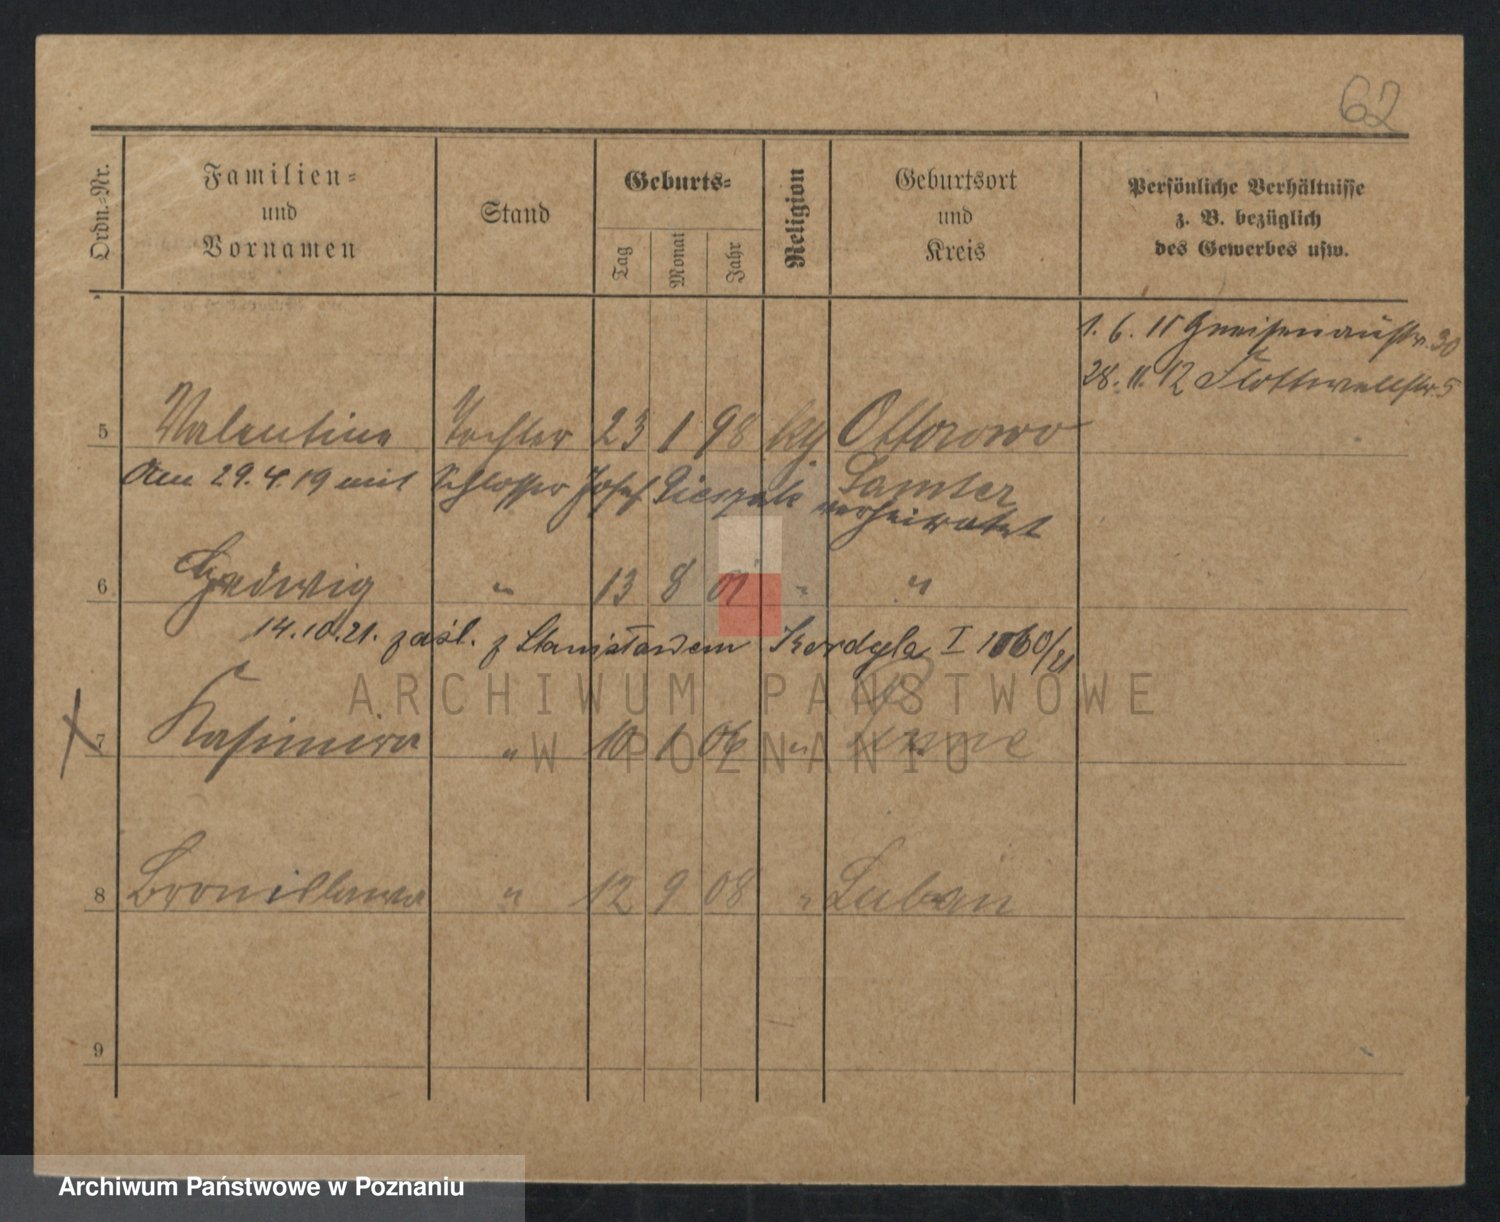 62
Ordn.-Nr.
Familien-
und
Vornamen
Stand
Geburts-
Tag
Monat
Jahr
Religion
Geburtsort
und
Kreis
Persönliche Verhältnisse
z. B. bezüglich
des Gewerbes usw.
1. 6. 11 Gneisenaustr. 30
28. 11. 12 Flottwellstr. 5
5 Valentine Tochter 23 1 98 kg Ottorowo
Samter
Am 29.4.19 mit Schlosser Josef verheiratet
6 Hedwig " 13 8 01 " "
14.10.21. zaśl. z Stanisławem Kordyla I
7 Kasimira " 10 1 06 "
8 Bronislawa " 12 9 08 " Luban
9
ARCHIWUM PAŃSTWOWE
W POZNANIU
Archiwum Państwowe w Poznaniu